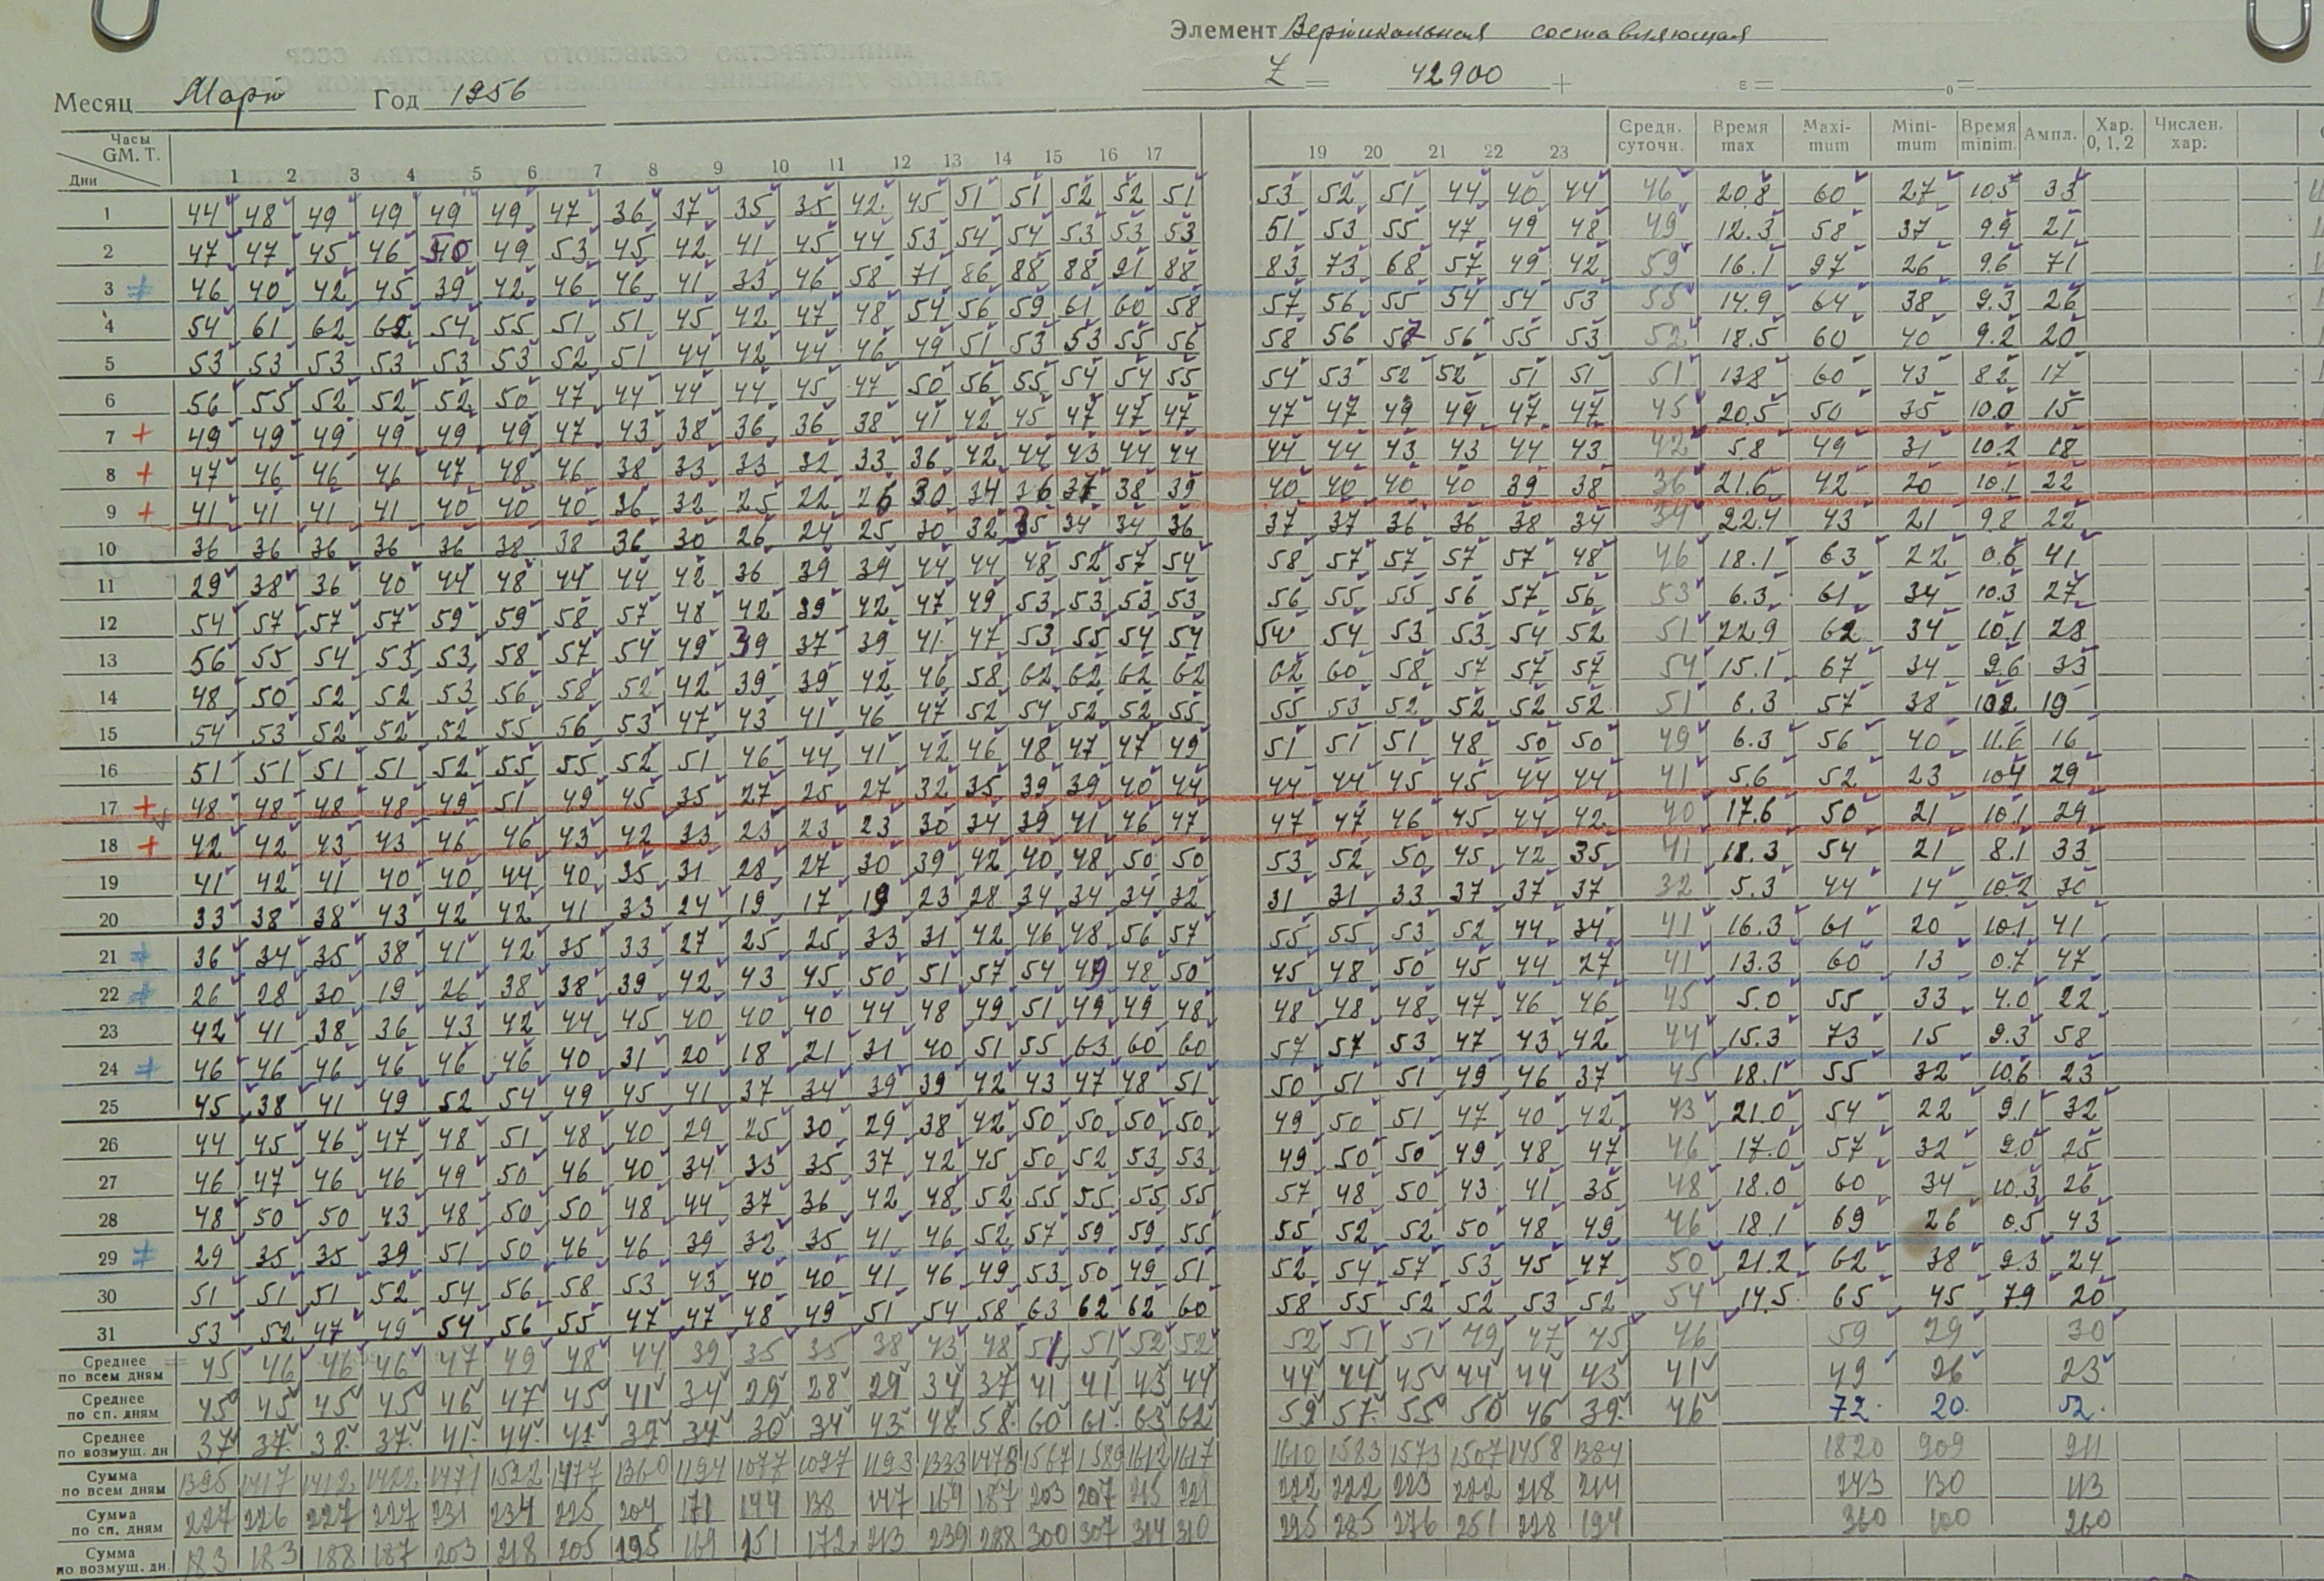 Элемент Вертикальная составляющая
Z = 42900 + ε = ₀=
Месяц Март Год 1956
Часы GM. T. Дни 1 2 3 4 5 6 7 8 9 10 11 12 13 14 15 16 17 19 20 21 22 23 Средн. суточн. Время max Maxi-mum Mini-mum Время minim. Ампл. Хар. 0, 1, 2 Числен. хар.
1 44 48 49 49 49 49 47 36 37 35 35 42 45 51 51 52 52 51 53 52 51 44 40 44 46 20.8 60 27 10.5 33
2 47 47 45 46 50 49 53 45 42 41 45 44 53 54 54 53 53 53 51 53 55 47 49 48 49 12.3 58 37 9.9 21
3 46 40 42 45 39 42 46 46 41 33 46 58 71 86 88 88 91 88 83 73 68 57 49 42 59 16.1 97 26 9.6 71
4 54 61 62 62 54 55 51 51 45 42 47 48 54 56 59 61 60 58 57 56 55 54 54 53 55 14.9 64 38 9.3 26
5 53 53 53 53 53 53 52 51 44 42 44 46 49 51 53 53 55 56 58 56 57 56 55 53 52 18.5 60 40 9.2 20
6 56 55 52 52 52 50 47 44 44 44 45 47 50 56 55 54 54 55 54 53 52 52 51 51 51 13.8 60 43 8.2 17
7 + 49 49 49 49 49 49 47 43 38 36 36 38 41 42 45 47 47 47 47 47 49 49 47 47 45 20.5 50 35 10.0 15
8 + 47 46 46 46 47 48 46 38 33 33 32 33 36 42 44 43 44 44 44 44 43 43 44 43 42 5.8 49 31 10.2 18
9 + 41 41 41 41 40 40 40 36 32 25 22 26 30 34 36 37 38 39 40 40 40 40 39 38 36 21.6 42 20 10.1 22
10 36 36 36 36 36 38 38 36 30 26 24 25 30 32 35 34 34 36 37 37 36 36 38 34 34 22.4 43 21 9.8 22
11 29 38 36 40 44 48 44 44 42 36 39 39 44 44 48 52 57 54 58 57 57 57 57 48 46 18.1 63 22 0.6 41
12 54 57 57 57 59 59 58 57 48 42 39 42 47 49 53 53 53 53 56 55 55 56 57 56 53 6.3 61 34 10.3 27
13 56 55 54 53 53 58 57 54 49 39 37 39 41 47 53 55 54 54 54 54 53 53 54 52 51 22.9 62 34 10.1 28
14 48 50 52 52 53 56 58 52 42 39 39 42 46 58 62 62 62 62 62 60 58 57 57 57 54 15.1 67 34 9.6 33
15 54 53 52 52 52 55 56 53 47 43 41 46 47 52 54 52 52 55 55 53 52 52 52 52 51 6.3 57 38 10.2 19
16 51 51 51 51 52 55 55 52 51 46 44 41 42 46 48 47 47 49 51 51 51 48 50 50 49 6.3 56 40 11.6 16
17 + 48 48 48 48 49 51 49 45 35 27 25 27 32 35 39 39 40 44 44 44 45 45 44 44 41 5.6 52 23 10.4 29
18 + 42 42 43 43 46 46 43 42 33 23 23 23 30 34 39 41 46 47 47 47 46 45 44 42 40 17.6 50 21 10.1 29
19 41 42 41 40 40 44 40 35 31 28 27 30 39 42 40 48 50 50 53 52 50 45 42 35 41 18.3 54 21 8.1 33
20 33 38 38 43 42 42 41 33 24 19 17 19 23 28 34 34 34 32 31 31 33 37 37 37 32 5.3 44 14 10.2 30
21 36 34 35 38 41 42 35 33 27 25 25 33 31 42 46 48 56 57 55 55 53 52 44 34 41 16.3 61 20 10.1 41
22 26 28 30 19 26 38 38 39 42 43 45 50 51 57 54 49 48 50 45 48 50 45 44 27 41 13.3 60 13 0.7 47
23 42 41 38 36 43 42 44 45 40 40 40 44 48 49 51 49 49 48 48 48 48 47 46 46 45 5.0 55 33 4.0 22
24 46 46 46 46 46 46 40 31 20 18 21 31 40 51 55 63 60 60 57 57 53 47 43 42 44 15.3 73 15 9.3 58
25 45 38 41 49 52 54 49 45 41 37 34 39 39 42 43 47 48 51 50 51 51 49 46 37 45 18.1 55 32 10.6 23
26 44 45 46 47 48 51 48 40 29 25 30 29 38 42 50 50 50 50 49 50 51 47 40 42 43 21.0 54 22 9.1 32
27 46 47 46 46 49 50 46 40 34 33 35 37 42 45 50 52 53 53 49 50 50 49 48 47 46 17.0 57 32 9.0 25
28 48 50 50 43 48 50 50 48 44 37 36 42 48 52 55 55 55 55 57 48 50 43 41 35 48 18.0 60 34 10.3 26
29 29 35 35 39 51 50 46 46 39 32 35 41 46 52 57 59 59 55 55 52 52 50 48 49 46 18.1 69 26 0.5 43
30 51 51 51 52 54 56 58 53 43 40 40 41 46 49 53 50 49 51 52 54 57 53 45 47 50 21.2 62 38 9.3 24
31 53 52 47 49 54 56 55 47 47 48 49 51 54 58 63 62 62 60 58 55 52 52 53 52 54 14.5 65 45 7.9 20
Среднее по всем дням 45 46 46 46 47 49 48 44 39 35 35 38 43 48 51 51 52 52 52 51 51 49 47 45 46 59 29 30
Среднее по сп. дням 45 45 45 45 46 47 45 41 34 29 28 29 34 37 41 41 43 44 44 44 45 44 44 43 41 49 26 23
Среднее по возмущ. дн 37 37 38 37 41 44 41 39 34 30 34 43 48 58 60 61 63 62 59 57 55 50 46 39 46 72 20 52
Сумма по всем дням 1395 1417 1412 1422 1471 1522 1477 1360 1194 1077 1097 1193 1333 1478 1567 1589 1612 1617 1610 1583 1573 1507 1458 1384 1820 909 911
Сумма по сп. дням 227 226 227 227 231 234 225 204 171 144 138 147 169 187 203 207 215 221 222 222 223 222 218 214 243 130 113
Сумма по возмущ. дн. 183 183 188 187 203 218 205 195 169 151 172 213 239 288 300 307 314 310 295 285 276 251 228 194 360 100 260